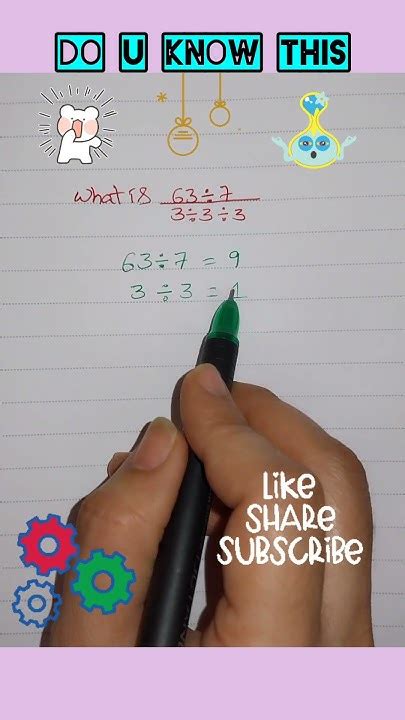 DO U KNOW THIS
What is 63÷7
3÷3÷3
63÷7 = 9
3 ÷ 3 = 1
LIKE
SHARE
SUBSCRIBE